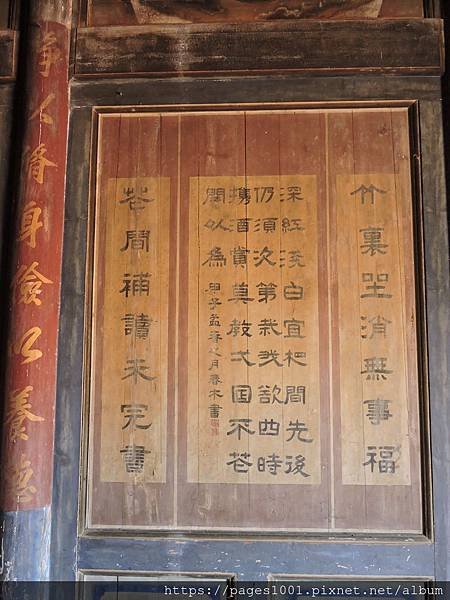 竹裏坐消無事福
深紅淺白宜相間先後
仍須次第栽我欲四時
攜酒賞莫教弌日不花
開以為
甲子孟春之月春木書
花間補讀未完書
静以脩身儉以養德
https://pages1001.pixnet.net/album